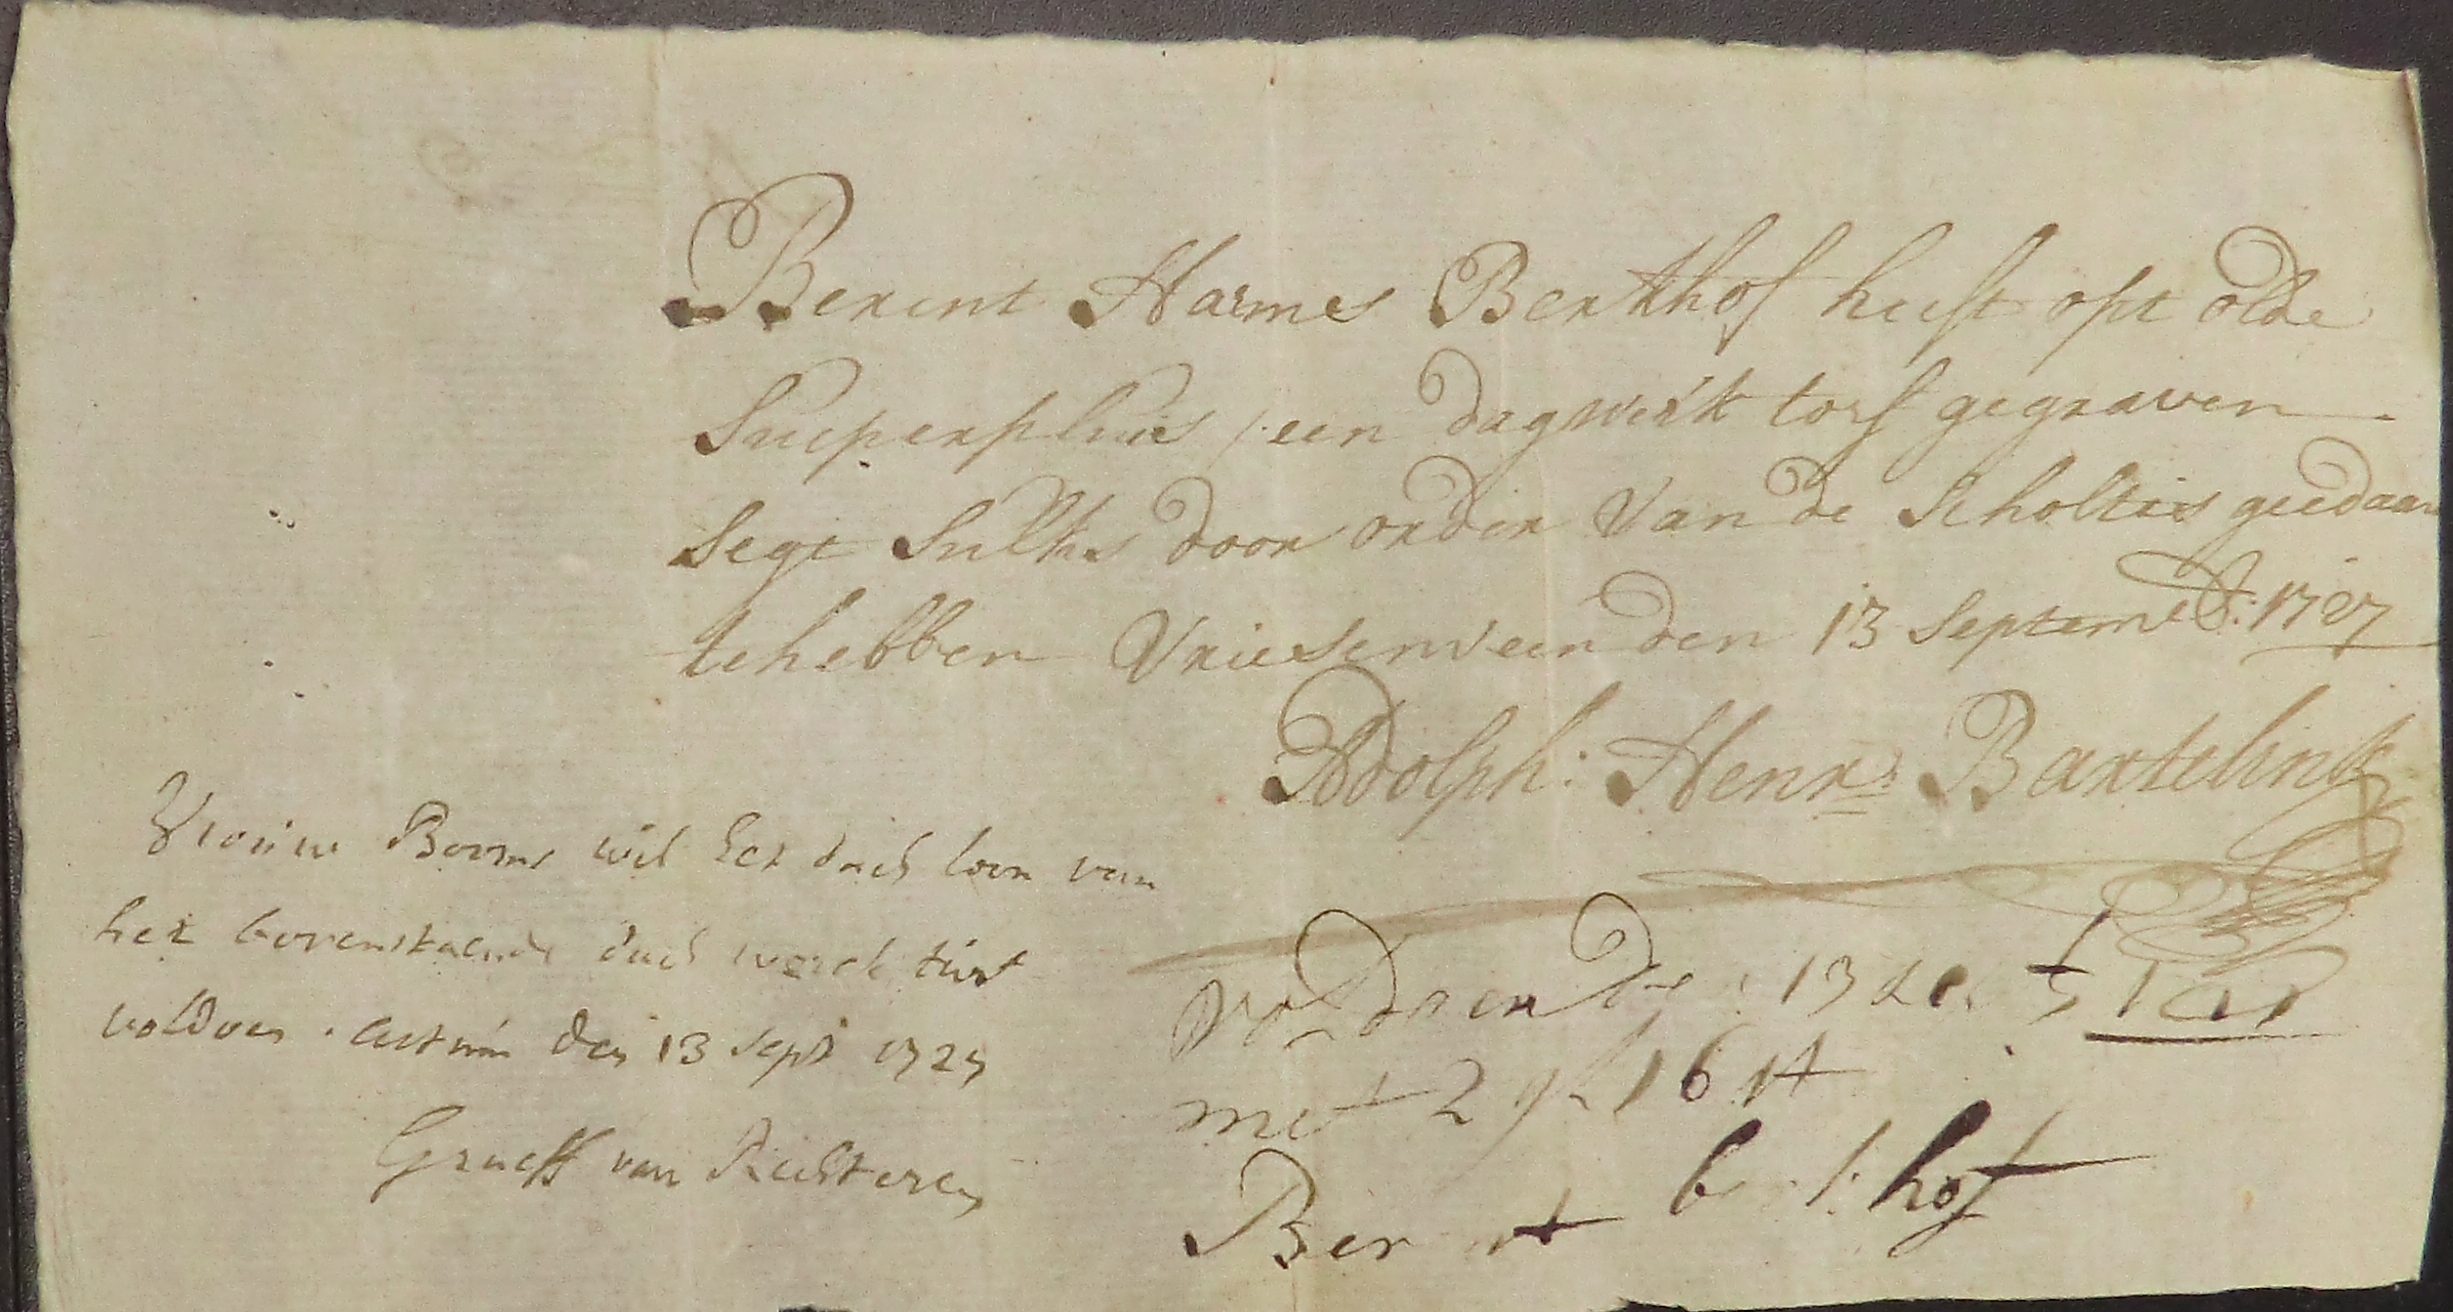 Berent Harmes Berkhof heeft opt olde
Suiperpluis / een dagwerk torf gegraven
Segt Sulks door order van de Scholtis geedaan
te hebben Vriesenveen den 13 Septemb: 1727
Adolph: Henr: Bartelink
Vrouw Booms wil het dach loon van
het bovenstaende dach werck turf
voldoen . den 13 sept 1727
Graeff van Rechteren
voldaen de 13
met 2 gl 16 st
Berent berkhof